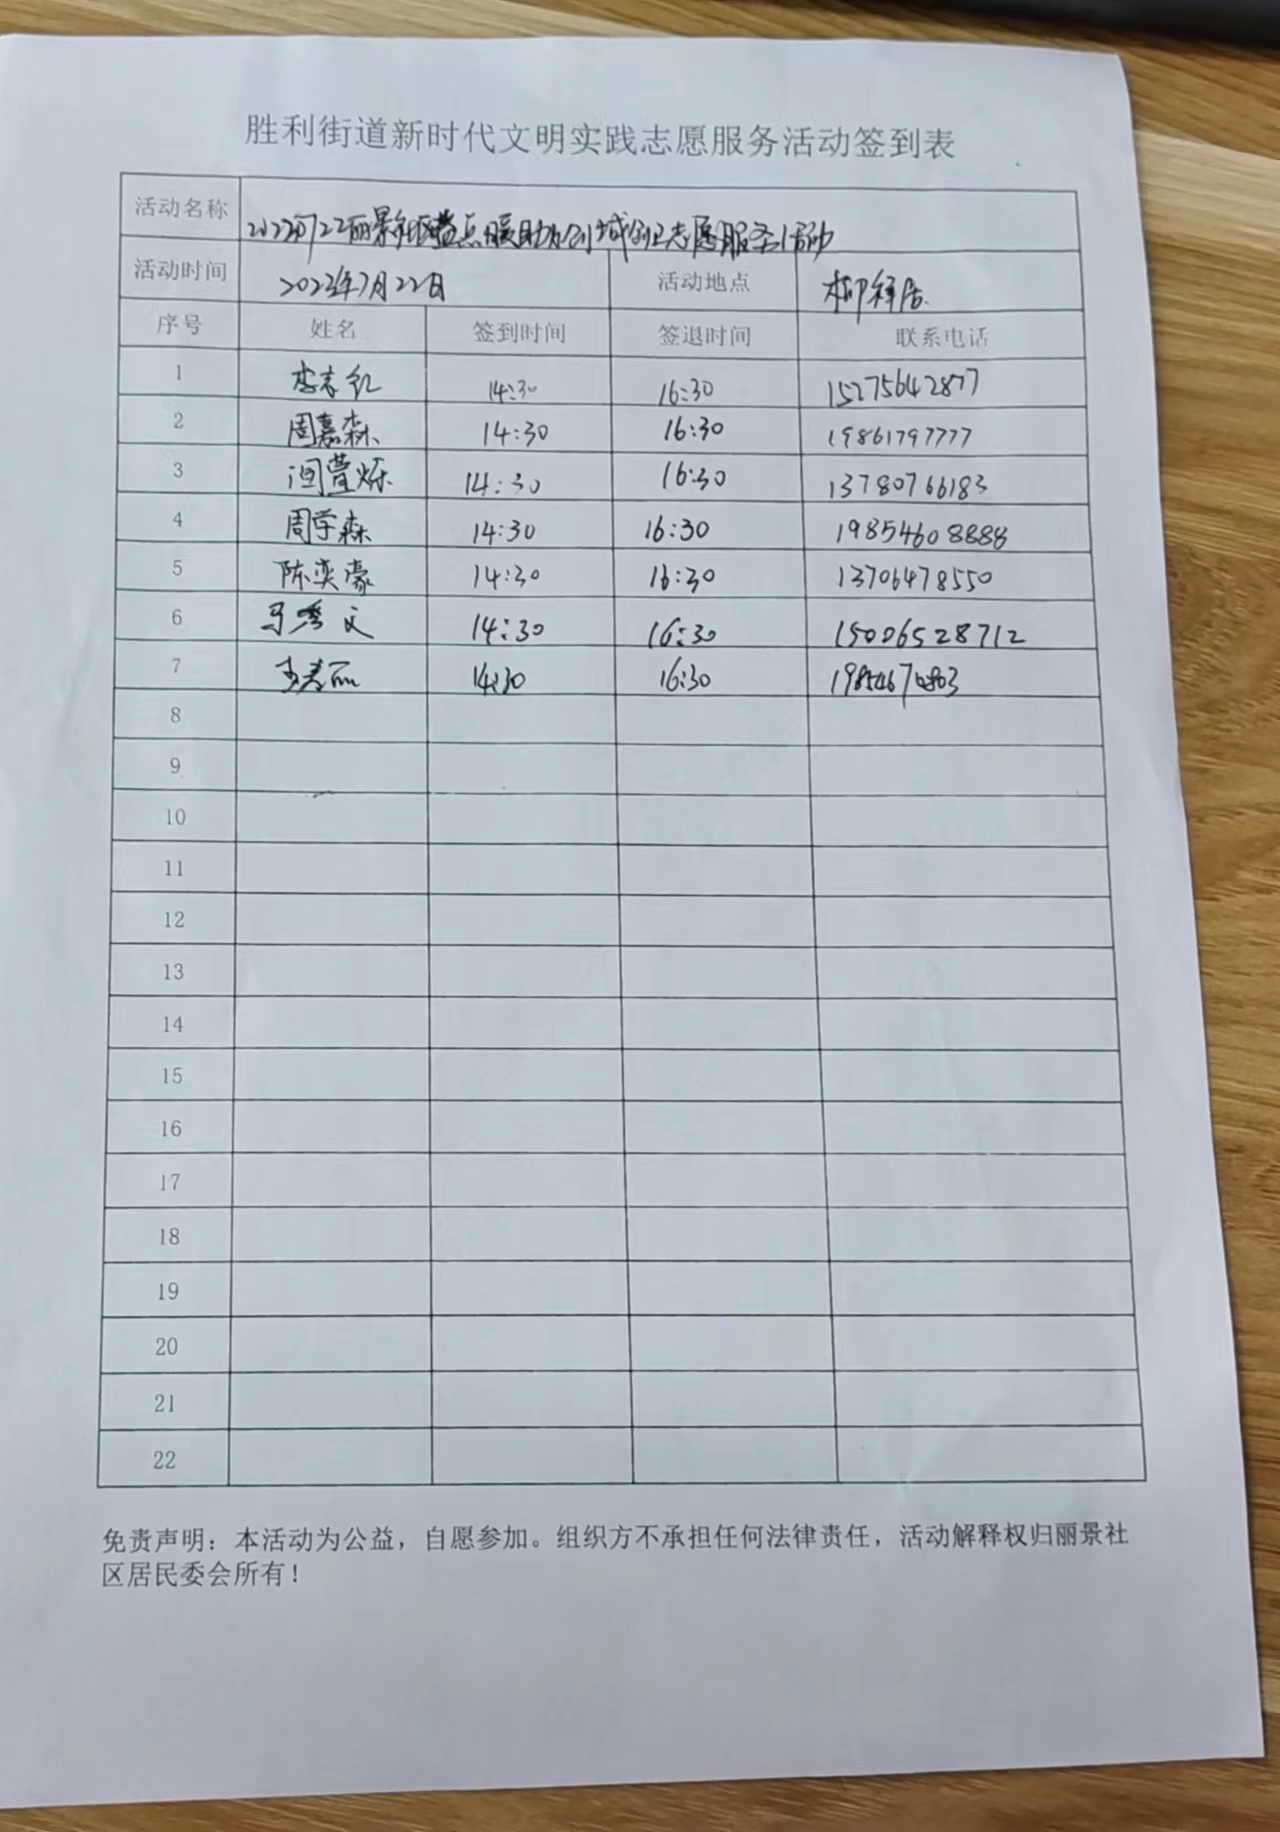 胜利街道新时代文明实践志愿服务活动签到表
活动名称 丽景社区 点暖 助力 城 志愿服务活动
活动时间 2023年7月22日 活动地点
序号 姓名 签到时间 签退时间 联系电话
1 李志红 14:30 16:30 15275642877
2 周嘉森 14:30 16:30 19861797777
3 闫萱烁 14:30 16:30 13780766183
4 周学森 14:30 16:30 19854608888
5 陈奕豪 14:30 16:30 13706478550
6 马秀文 14:30 16:30 15006528712
7 14:30 16:30
8
9
10
11
12
13
14
15
16
17
18
19
20
21
22
免责声明：本活动为公益，自愿参加。组织方不承担任何法律责任，活动解释权归丽景社
区居民委会所有！